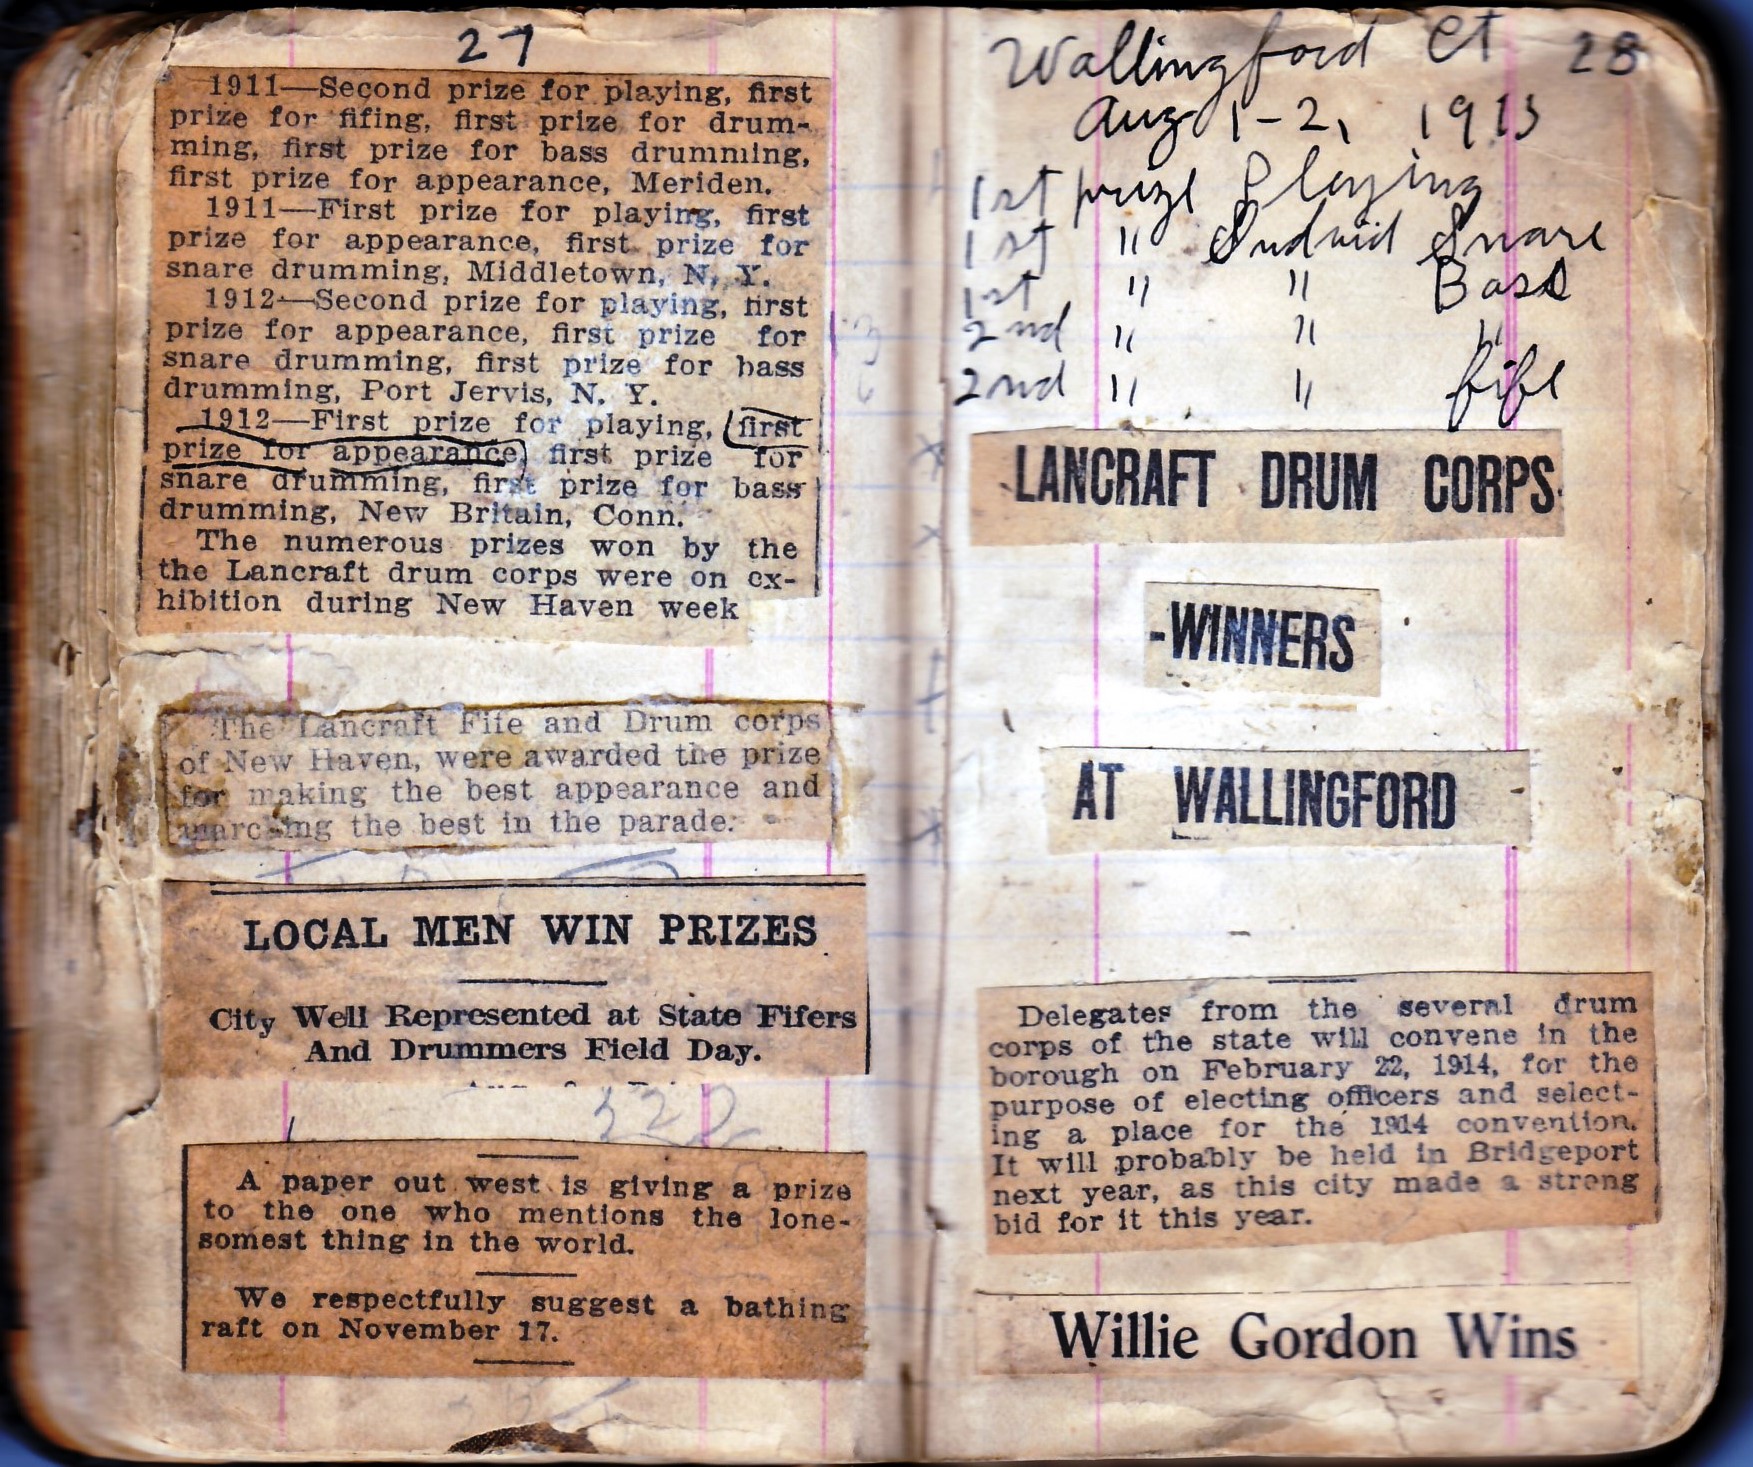 27
1911—Second prize for playing, first
prize for fifing, first prize for drum-
ming, first prize for bass drumming,
first prize for appearance, Meriden.
1911—First prize for playing, first
prize for appearance, first prize for
snare drumming, Middletown, N. Y.
1912—Second prize for playing, first
prize for appearance, first prize for
snare drumming, first prize for bass
drumming, Port Jervis, N. Y.
1912—First prize for playing, (first
prize for appearance) first prize for
snare drumming, first prize for bass
drumming, New Britain, Conn.
The numerous prizes won by the
the Lancraft drum corps were on ex-
hibition during New Haven week
The Lancraft Fife and Drum corps
of New Haven, were awarded the prize
for making the best appearance and
marching the best in the parade.
LOCAL MEN WIN PRIZES
City Well Represented at State Fifers
And Drummers Field Day.
322
A paper out west is giving a prize
to the one who mentions the lone-
somest thing in the world.
We respectfully suggest a bathing
raft on November 17.
Wallingford Ct 28
Aug 1-2, 1913
1st prize Playing
1st " Indvid Snare
1st " " Bass
2nd " " "
2nd " " fife
LANCRAFT DRUM CORPS
-WINNERS
AT WALLINGFORD
Delegates from the several drum
corps of the state will convene in the
borough on February 22, 1914, for the
purpose of electing officers and select-
ing a place for the 1914 convention.
It will probably be held in Bridgeport
next year, as this city made a strong
bid for it this year.
Willie Gordon Wins